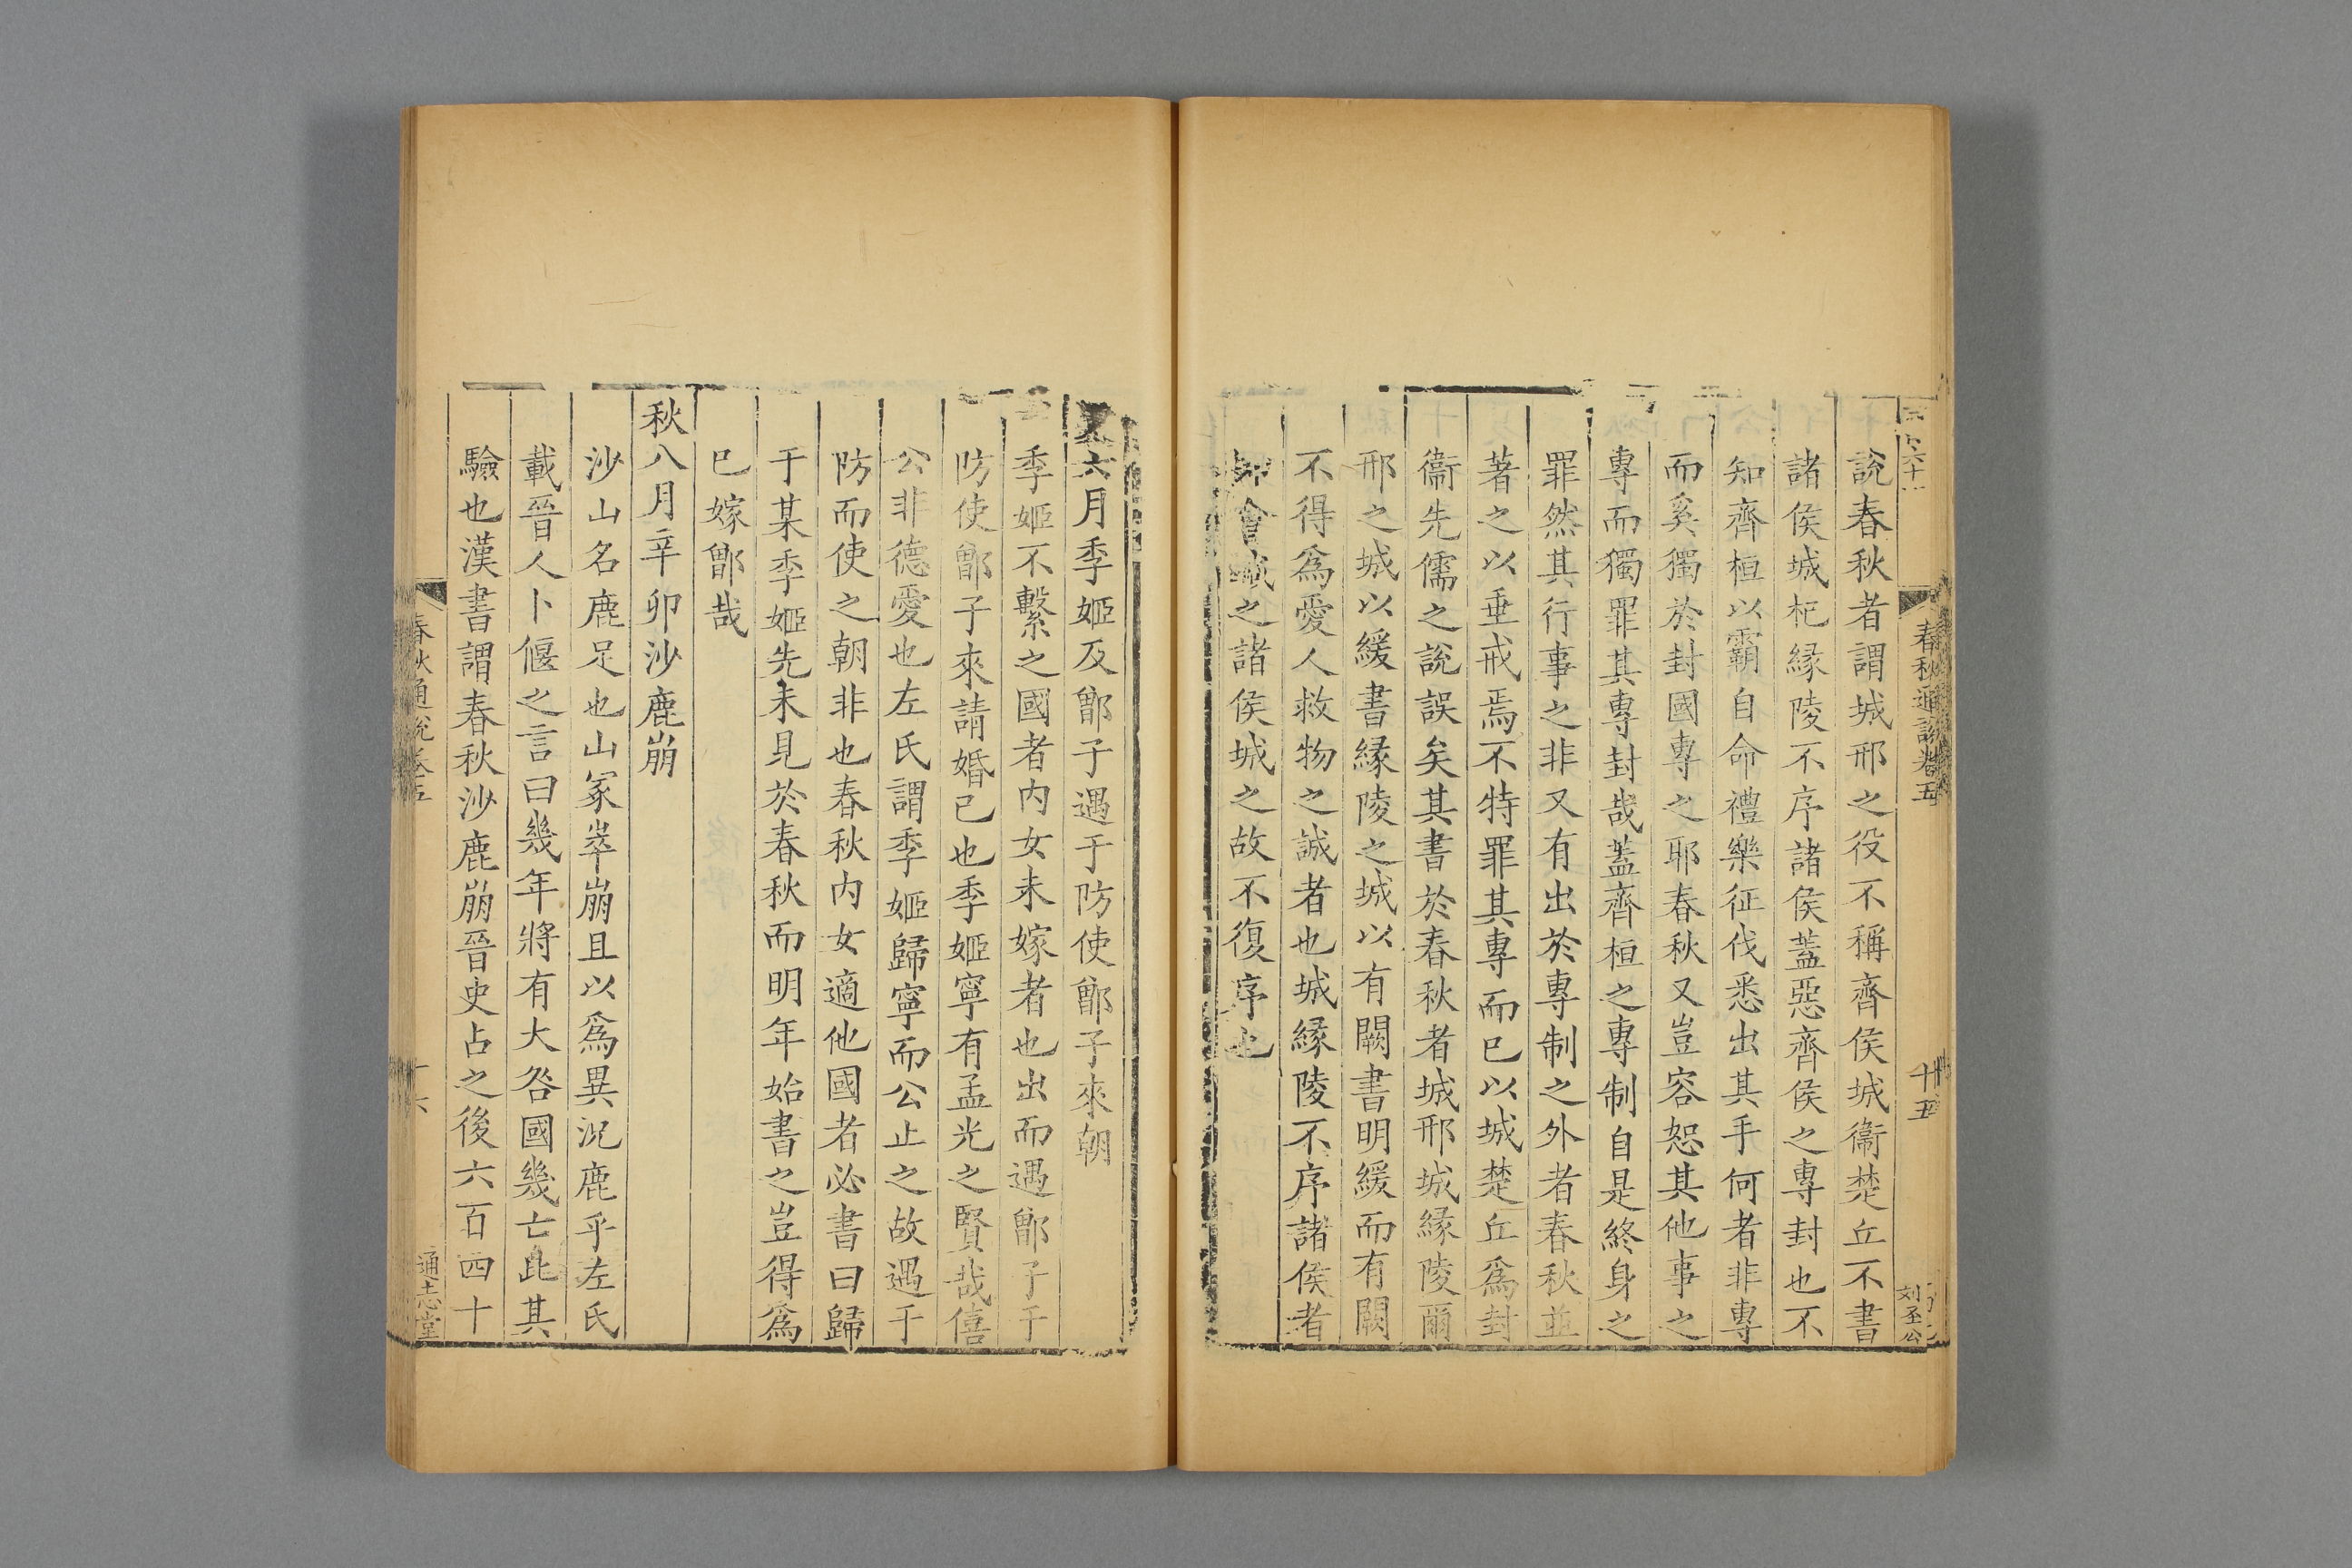 說春秋者謂城邢之役不稱齊侯城衞楚丘不書
諸侯城杞緣陵不序諸侯蓋惡齊侯之專封也不
知齊桓以霸自命禮樂征伐悉出其手何者非專
而奚獨於封國專之耶春秋又豈容恕其他事之
專而獨罪其專封哉蓋齊桓之專制自是終身之
罪然其行事之非又有出於專制之外者春秋並
著之以垂戒焉不特罪其專而已以城楚丘爲封
衞先儒之說誤矣其書於春秋者城邢城緣陵爾
邢之城以緩書緣陵之城以有闕書明緩而有闕
不得爲愛人救物之誠者也城緣陵不序諸侯者
卽會城之諸侯城之故不復序也
春秋通說卷五
十五
刘丕公
夏六月季姬及鄫子遇于防使鄫子來朝
季姬不繫之國者內女未嫁者也出而遇鄫子于
防使鄫子來請婚已也季姬寧有孟光之賢哉僖
公非德愛也左氏謂季姬歸寧而公止之故遇于
防而使之朝非也春秋內女適他國者必書曰歸
于某季姬先未見於春秋而明年始書之豈得爲
已嫁鄫哉
秋八月辛卯沙鹿崩
沙山名鹿足也山冢崒崩且以爲異況鹿乎左氏
載晉人卜偃之言曰幾年將有大咎國幾亡此其
驗也漢書謂春秋沙鹿崩晉史占之後六百四十
春秋通說卷五
十六
通志堂